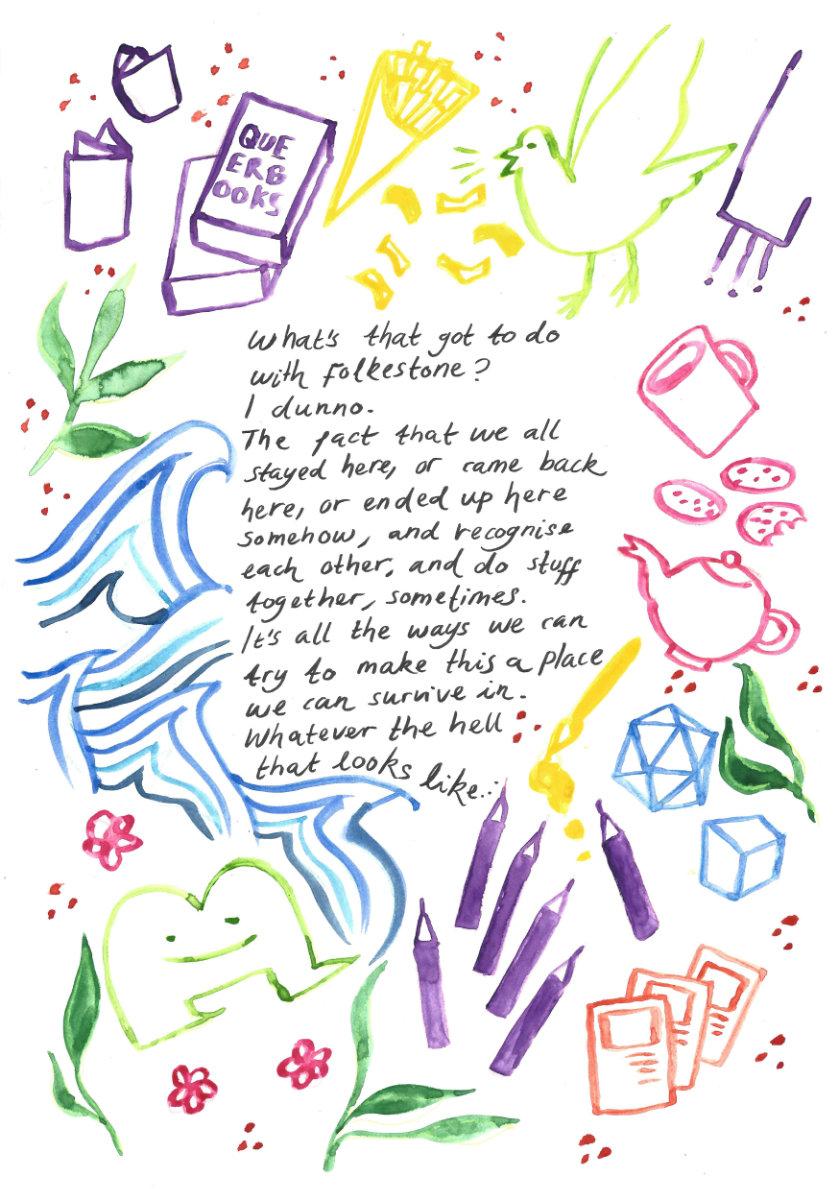 QUE
ERB
OOKS
What's that got to do
with folkestone?
I dunno.
The fact that we all
stayed here, or came back
here, or ended up here
somehow, and recognise
each other, and do stuff
together, sometimes.
It's all the ways we can
try to make this a place
we can survive in.
Whatever the hell
that looks like...